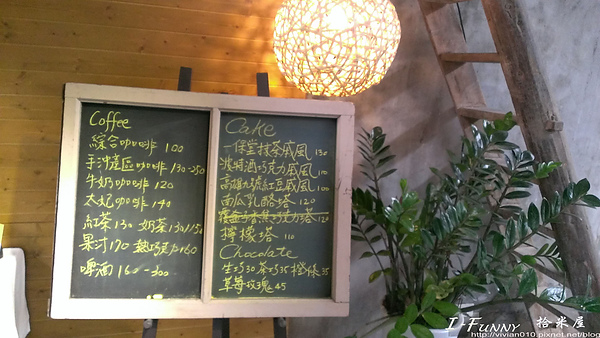 Coffee
綜合咖啡 100
手沖產區咖啡 130-250
牛奶咖啡 120
太妃咖啡 140
紅茶 130 奶茶 130/150
果汁 170 熱巧克力 160
啤酒 160-300
Cake
一保堂抹茶戚風 130
巧克力戚風 110
高雄九號紅豆戚風 100
南瓜乳酪塔 120
巧克力塔 120
檸檬塔 110
Chocolate
生巧 30 茶巧 35 橙條 35
草莓玫瑰 45
I-FUNNY 拾米屋
http://vivian010.pixnet.net/blog